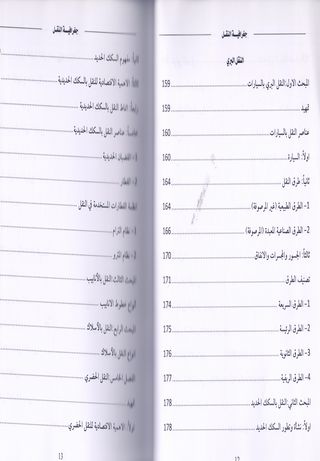 جغرافيـة النقـل
النقل البري
المبحث الاول: النقل البري بالسيارات 159
تمهيد 159
عناصر النقل بالسيارات 160
اولاً: السيارة 160
ثانياً: طرق النقل 164
1- الطرق الطبيعية (غير المرصوفة) 164
2- الطرق الصناعية المعبدة (المرصوفة) 166
ثالثاً: الجسور والمجسرات والانفاق 170
تصنيف الطرق 171
1- الطرق السريعة 174
2- الطرق الرئيسة 175
3- الطرق الثانوية 176
4- الطرق الريفية 177
المبحث الثاني: النقل بالسكك الحديد 178
اولاً: نشأة وتطور السكك الحديد 178
12
جغرافيـة النقـل
ثانياً: مفهوم السكك الحديد
ثالثاً: الاهمية الاقتصادية للنقل بالسكك الحديدية
رابعاً: انماط النقل بالسكك الحديدية
خامساً: عناصر النقل بالسكك الحديد
1- القضبان الحديدية
2- القطار
انظمة القطارات المستخدمة في النقل
1- نظام الترام
2- نظام المترو
المبحث الثالث: النقل بالأنابيب
انواع خطوط الانابيب
المبحث الرابع: النقل بالأسلاك
انواع النقل بالأسلاك
الفصل الخامس: النقل الحضري
تمهيد
اولاً: الاهمية الاقتصادية للنقل الحضري
13